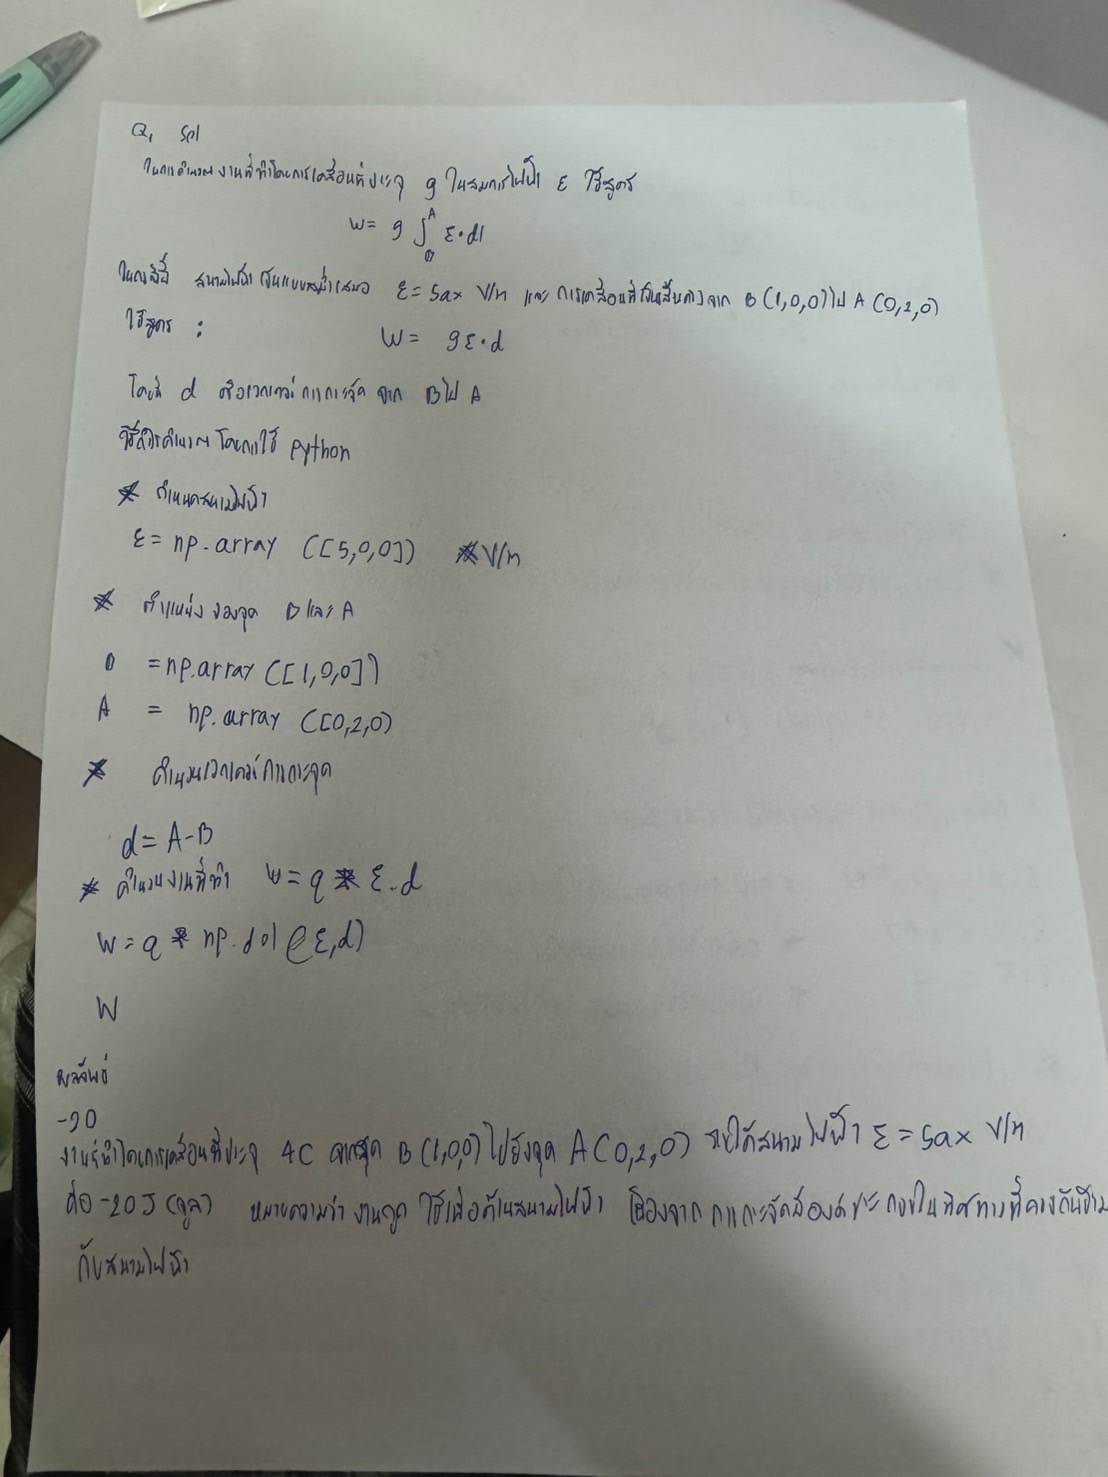 Q1 Sol
ในการคำนวณงานที่ทำโดยการเคลื่อนที่ประจุ q ในสมการไฟฟ้า E ใช้สูตร
W = q ∫ᴮᴬ E • dl
ในกรณีนี้ สนามไฟฟ้าเป็นแบบสม่ำเสมอ E = 5ax V/m และการเคลื่อนที่เป็นเส้นตรงจาก B (1,0,0) ไป A (0,2,0)
ใช้สูตร : W = qE • d
โดยที่ d คือเวกเตอร์การกระจัด จาก B ไป A
วิธีการคำนวณโดยการใช้ python
* กำหนดสนามไฟฟ้า
E = np.array ([5,0,0]) * V/m
* ตำแหน่งของจุด B และ A
B = np.array ([1,0,0])
A = np.array ([0,2,0)
* คำนวนเวกเตอร์การกระจุด
d = A-B
* คำนวนงานที่ทำ W = q * E.d
W = q * np.dot (E,d)
W
ผลลัพธ์
-20
งานที่ทำโดยการเคลื่อนที่ประจุ 4C จากจุด B (1,0,0) ไปยังจุด A (0,2,0) ภายใต้สนามไฟฟ้า E = 5ax V/m
คือ -20J (จูล) หมายความว่า งานถูก ใช้เพื่อต้านสนามไฟฟ้า เนื่องจาก การกระจัดมีองค์ประกอบในทิศทางที่ตรงกันข้าม
กับสนามไฟฟ้า